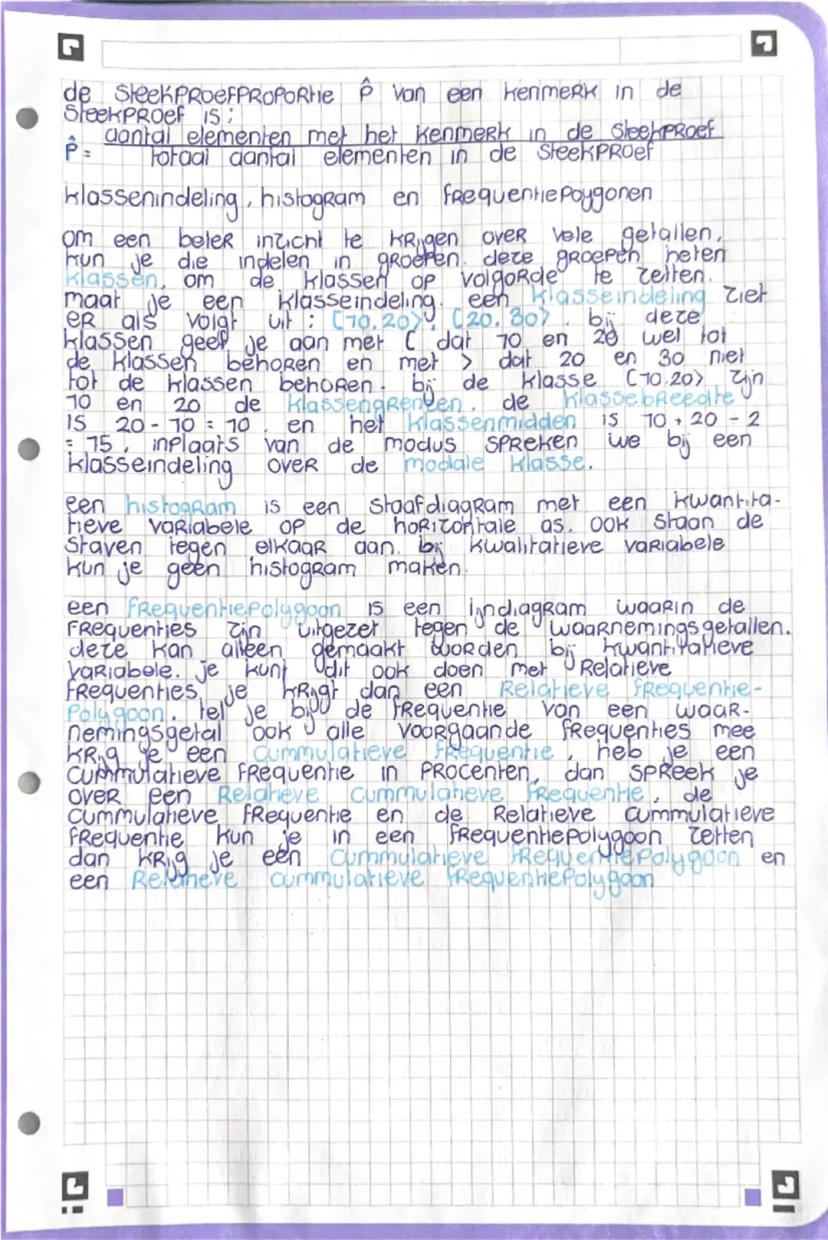 de steekproefproportie p̂ van een kenmerk in de
steekproef is:
aantal elementen met het kenmerk in de steekproef
p̂ = totaal aantal elementen in de steekproef
klassenindeling, histogram en frequentiepoygonen
om een beter inzicht te krijgen over vele getallen,
kun je die indelen in groepen. deze groepen heten
klassen, om de klassen op volgorde te zetten.
maat je een klasseindeling. een klasseindeling ziet
er als volgt uit: [10,20>, [20,30>. bij deze
klassen geef je aan met [ dat 10 en 20 wel tot
de klassen behoren en met > dat 20 en 30 niet
tot de klassen behoren. bij de klasse [10,20> zijn
10 en 20 de klassengrenzen. de klassebreedte
is 20 - 10 = 10. en het klassenmidden is 10 + 20 - 2
= 15. inplaats van de modus spreken we bij een
klasseindeling over de modale klasse.
een histogram is een staafdiagram met een kwantita-
tieve variabele op de horizontale as. ook staan de
staven tegen elkaar aan. bij kwalitatieve variabele
kun je geen histogram maken.
een frequentiepolygoon is een lijndiagram waarin de
frequenties zijn uitgezet tegen de waarnemingsgetallen.
deze kan alleen gemaakt worden bij kwantitatieve
variabele. je kunt dit ook doen met relatieve
frequenties, je krijgt dan een relatieve frequentie-
polygoon. tel je bij de frequentie van een waar-
nemingsgetal ook alle voorgaande frequenties mee
krijg je een cummulatieve frequentie, heb je een
cummulatieve frequentie in procenten, dan spreek je
over een relatieve cummulatieve frequentie, de
cummulatieve frequentie en de relatieve cummulatieve
frequentie kun je in een frequentiepolygoon zetten
dan krijg je een cummulatieve frequentiepolygoon en
een relatieve cummulatieve frequentiepolygoon